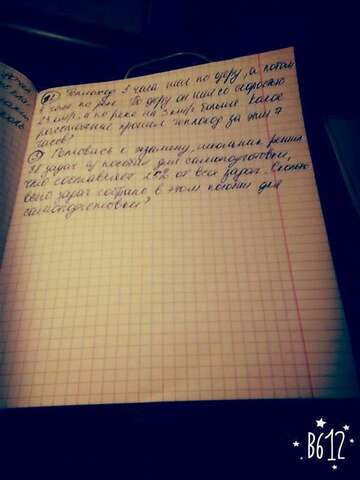 Теплоход 3 часа шёл по озеру, а потом
4 часа по реке. По озеру он шёл со скоростью
23 км/ч, а по реке на 3 км/ч больше. Какое
расстояние прошёл теплоход за эти 7
часов?
Готовясь к экзамену, школьник решил
38 задач из пособия для самоподготовки,
что составляет от всех задач. Сколько
всего задач собрано в этом пособии для
самоподготовки?
B612